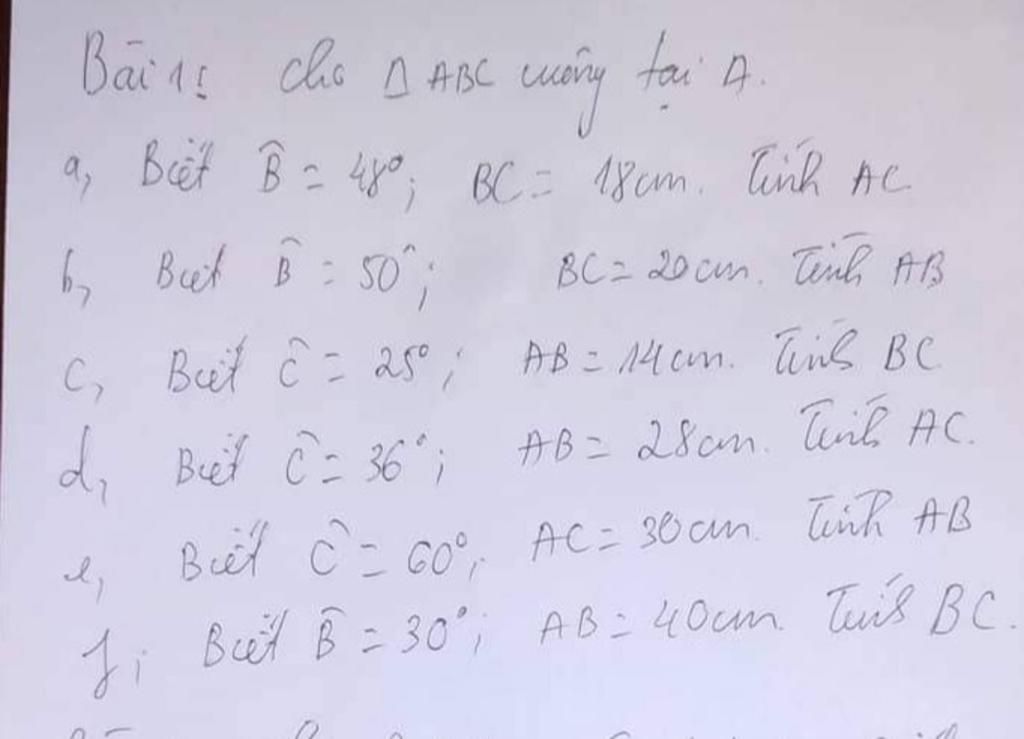 Bài 1: Cho Δ ABC vuông tại A.
a, Biết B̂ = 48°; BC = 18cm. Tính AC
b, Biết B̂ = 50°; BC = 20cm. Tính AB
c, Biết Ĉ = 25°; AB = 14cm. Tính BC
d, Biết Ĉ = 36°; AB = 28cm. Tính AC.
e, Biết Ĉ = 60°; AC = 30cm. Tính AB
f, Biết B̂ = 30°; AB = 40cm. Tính BC.